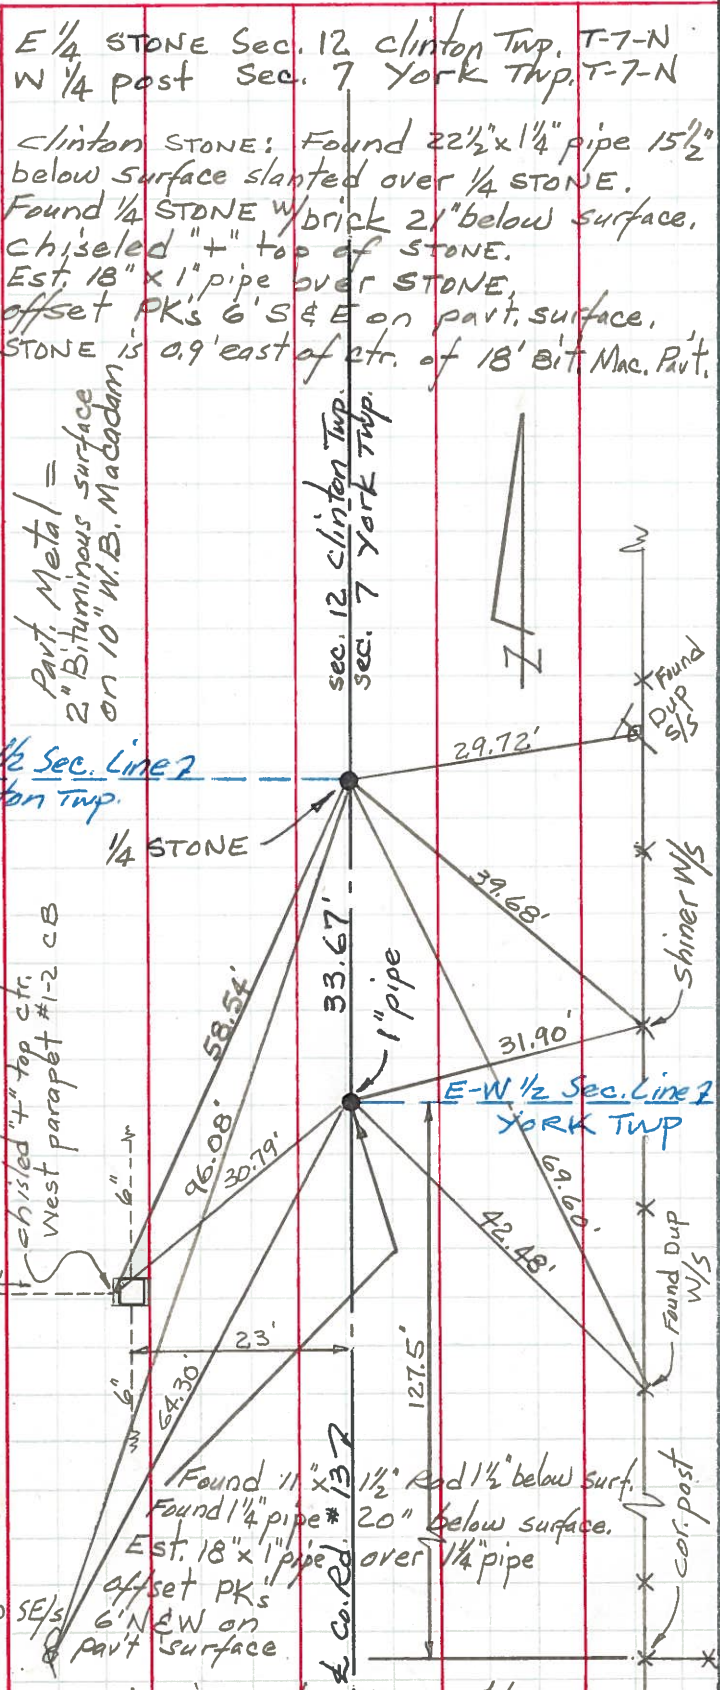 E 1/4 STONE Sec. 12 Clinton Twp. T-7-N
W 1/4 post Sec. 7 York Twp. T-7-N
Clinton STONE: Found 22½"x1¼" pipe 15½"
below surface slanted over 1/4 STONE.
Found 1/4 STONE w/brick 21" below surface.
chiseled "+" top of STONE.
Est. 18" x 1" pipe over STONE,
offset PK's 6' S & E on pav't. surface.
STONE is 0.9' east of ctr. of 18' Bit. Mac. Pav't.
Pav't. Metal =
2" Bituminous surface
on 10" W.B. Macadam
sec. 12 Clinton Twp.
sec. 7 York Twp.
Z
Found
Dup
S/S
29.72'
1/2 Sec. Line
ton Twp.
1/4 STONE
39.68'
shiner W/S
33.67'
1" pipe
chisled "+" top ctr.
West parapet #1-2 CB
58.54'
31.90'
E-W 1/2 Sec. Line
YORK TWP
96.08'
30.79'
6"
69.60'
42.48'
Found Dup
W/S
23'
127.5'
6"
64.30'
Found 11" x 1½" Rod 1½" below surf.
Found 1¼" pipe 20" below surface.
Est. 18" x 1" pipe over 1¼" pipe
offset PK's
6' N & W on
pav't surface
SE/S
℄ Co. Rd. #13
cor. post